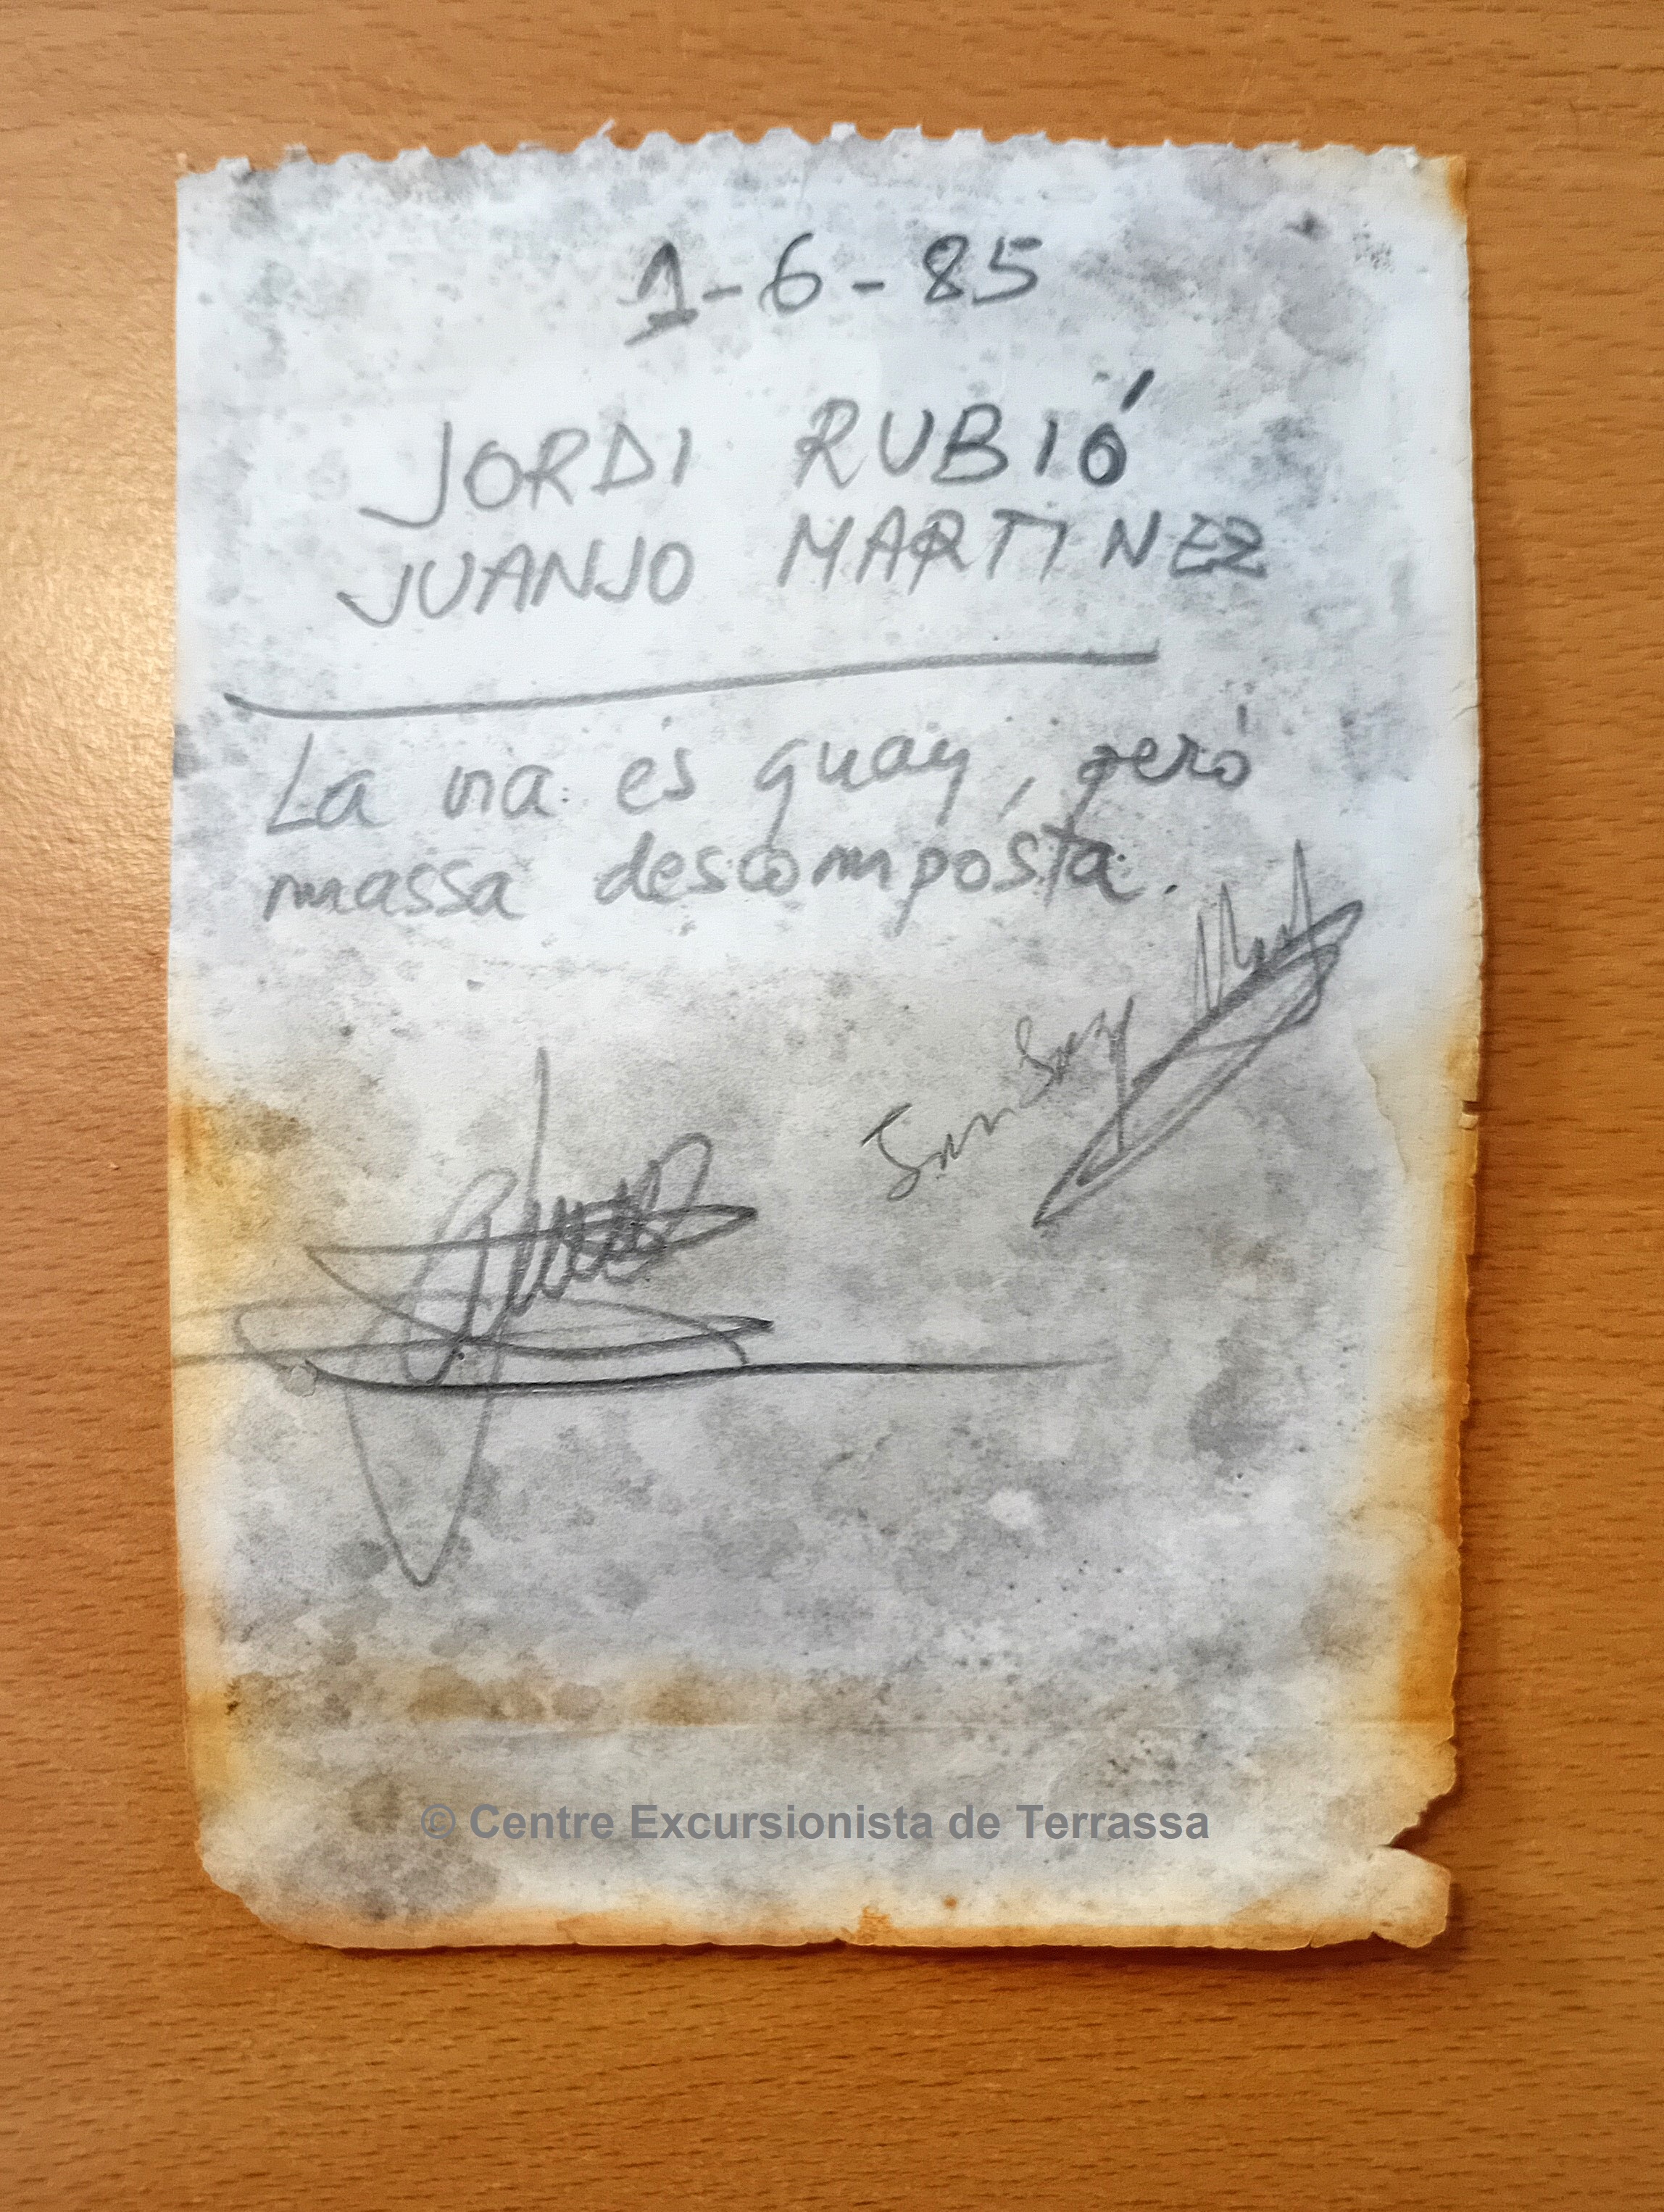 1-6-85
JORDI RUBIÓ
JUANJO MARTINEZ
La via es guay, peró
massa descomposta.
© Centre Excursionista de Terrassa